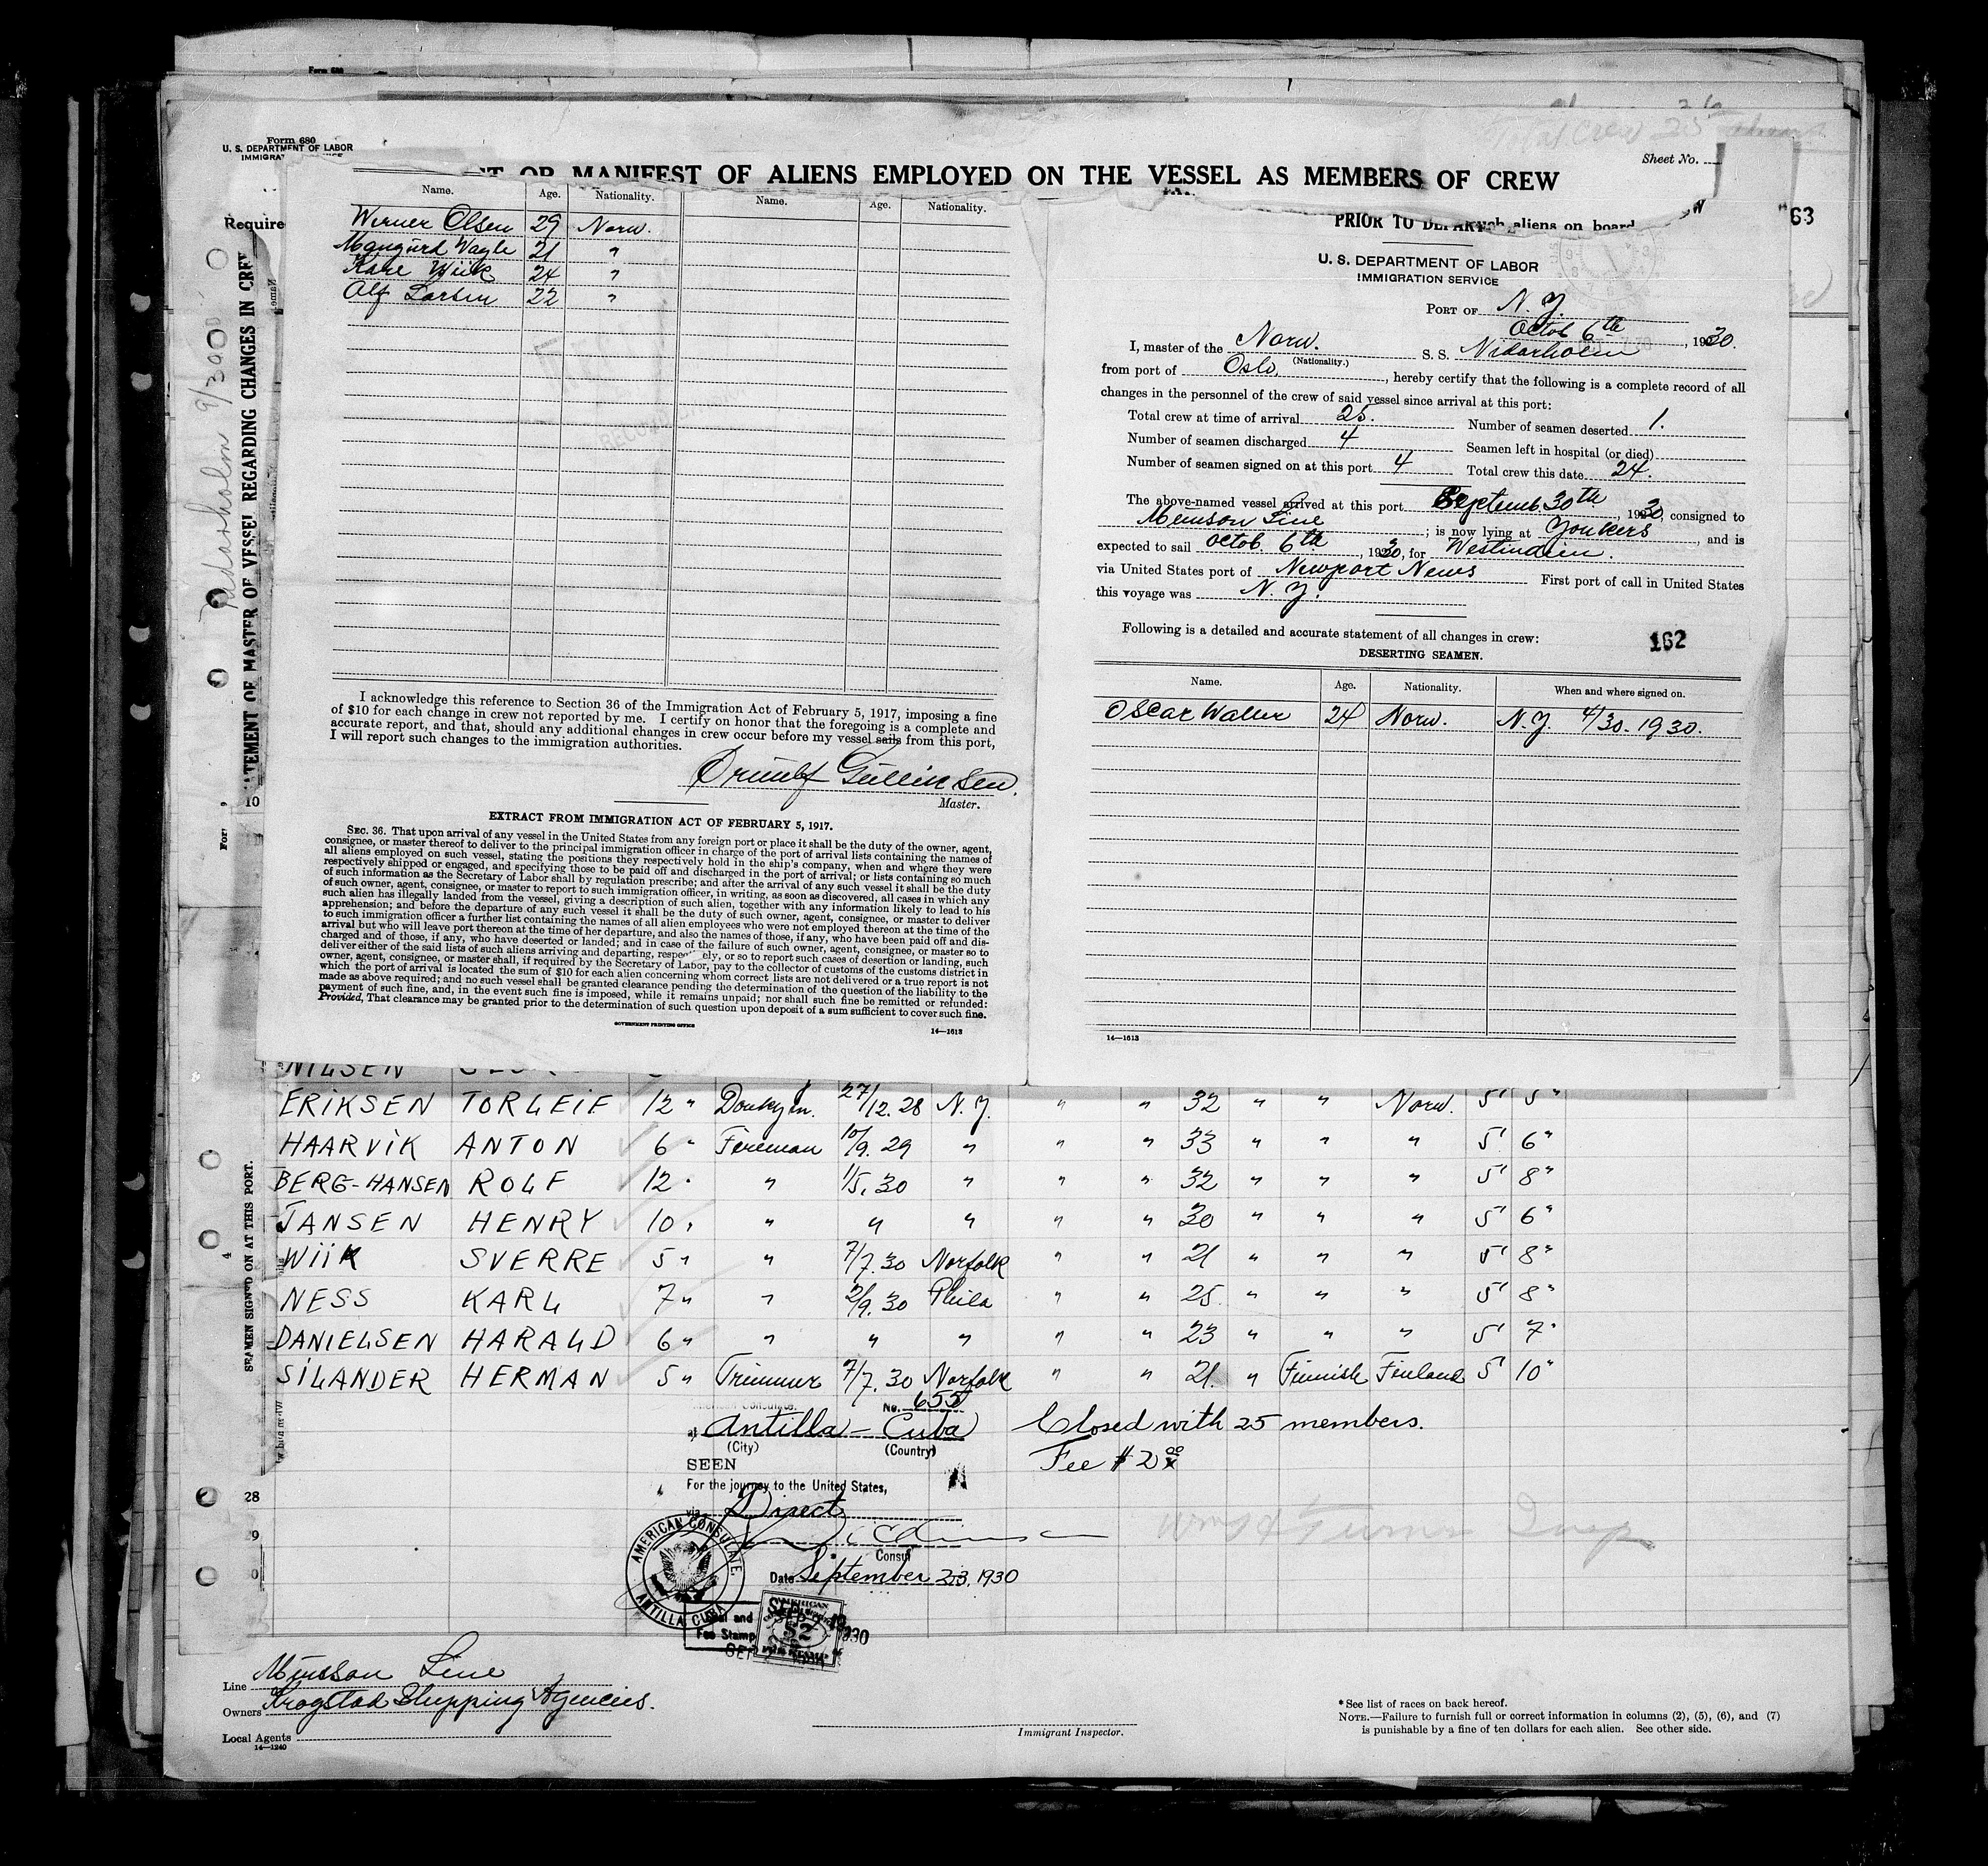 Form 680
U. S. DEPARTMENT OF LABOR
Total Crew 25
Sheet No.
OR MANIFEST OF ALIENS EMPLOYED ON THE VESSEL AS MEMBERS OF CREW
Require
63
Nidarholm 9/30
STATEMENT OF MASTER OF VESSEL REGARDING CHANGES IN CREW
Name. Age. Nationality. Name. Age. Nationality.
Werner Olsen 29 Norw.
Wayle 21 "
Kare Wiik 24 "
Alf Larsen 22 "
I acknowledge this reference to Section 36 of the Immigration Act of February 5, 1917, imposing a fine
of $10 for each change in crew not reported by me. I certify on honor that the foregoing is a complete and
accurate report, and that, should any additional changes in crew occur before my vessel sails from this port,
I will report such changes to the immigration authorities.
Gullicksen.
Master.
EXTRACT FROM IMMIGRATION ACT OF FEBRUARY 5, 1917.
SEC. 36. That upon arrival of any vessel in the United States from any foreign port or place it shall be the duty of the owner, agent,
consignee, or master thereof to deliver to the principal immigration officer in charge of the port of arrival lists containing the names of
all aliens employed on such vessel, stating the positions they respectively hold in the ship's company, when and where they were
respectively shipped or engaged, and specifying those to be paid off and discharged in the port of arrival; or lists containing so much
of such information as the Secretary of Labor shall by regulation prescribe; and after the arrival of any such vessel it shall be the duty
of such owner, agent, consignee, or master to report to such immigration officer, in writing, as soon as discovered, all cases in which any
such alien has illegally landed from the vessel, giving a description of such alien, together with any information likely to lead to his
apprehension; and before the departure of any such vessel it shall be the duty of such owner, agent, consignee, or master to deliver
to such immigration officer a further list containing the names of all alien employees who were not employed thereon at the time of the
arrival but who will leave port thereon at the time of her departure, and also the names of those, if any, who have been paid off and dis-
charged and of those, if any, who have deserted or landed; and in case of the failure of such owner, agent, consignee, or master so to
deliver either of the said lists of such aliens arriving and departing, respectively, or so to report such cases of desertion or landing, such
owner, agent, consignee, or master shall, if required by the Secretary of Labor, pay to the collector of customs of the customs district in
which the port of arrival is located the sum of $10 for each alien concerning whom correct lists are not delivered or a true report is not
made as above required; and no such vessel shall be granted clearance pending the determination of the question of the liability to the
payment of such fine, and, in the event such fine is imposed, while it remains unpaid; nor shall such fine be remitted or refunded:
Provided, That clearance may be granted prior to the determination of such question upon deposit of a sum sufficient to cover such fine.
GOVERNMENT PRINTING OFFICE
14—1613
PRIOR TO DEPARTU
aliens on board
U. S. DEPARTMENT OF LABOR
IMMIGRATION SERVICE
PORT OF N. Y.
Octob 6th, 1930.
I, master of the Norw. S. S. Nidarholm
(Nationality.)
from port of Oslo, hereby certify that the following is a complete record of all
changes in the personnel of the crew of said vessel since arrival at this port:
Total crew at time of arrival 25. Number of seamen deserted 1.
Number of seamen discharged 4 Seamen left in hospital (or died)
Number of seamen signed on at this port 4 Total crew this date 24.
The above-named vessel arrived at this port Septemb 30th, 1930, consigned to
Munson Line; is now lying at Yonkers, and is
expected to sail Octob. 6th, 1930, for Westindien.
via United States port of Newport News First port of call in United States
this voyage was N. Y.
Following is a detailed and accurate statement of all changes in crew:
162
DESERTING SEAMEN.
Name. Age. Nationality. When and where signed on.
Oscar Waller 24 Norw. N. Y. 4/30. 1930.
14—1613
SEAMEN SIGNED ON AT THIS PORT. 4
10
NILSEN
ERIKSEN TORLEIF 12 " Donkym. 27/12.28 N. Y. " " 32 " " Norw. 5' 5"
HAARVIK ANTON 6 " Fireman 10/9.29 " " " 33 " " " 5' 6"
BERG-HANSEN ROLF 12 " " 1/5.30 " " " 32 " " " 5' 8"
JANSEN HENRY 10 " " " " " " 30 " " " 5' 6"
WIIK SVERRE 5 " " 7/7.30 Norfolk " " 21 " " " 5' 8"
NESS KARL 7 " " 2/9.30 Phila " " 25 " " " 5' 8"
DANIELSEN HARALD 6 " " " " " " 23 " " " 5' 7"
SILANDER HERMAN 5 " Trimmer 7/7.30 Norfolk " " 21. " Finnish Finland 5' 10"
No. 655
at Antilla – Cuba Closed with 25 members.
(City) (Country)
Fee $2.00
SEEN
For the journey to the United States,
28
via Direct
Consul
Date September 23, 1930
AMERICAN CONSULATE.
ANTILLA CUBA
Seal and
Fee Stamp
AMERICAN
$2
Line Munson Line
Owners Krogstad Shipping Agencies.
Local Agents
14—1240
Immigrant Inspector.
* See list of races on back hereof.
NOTE.—Failure to furnish full or correct information in columns (2), (5), (6), and (7)
is punishable by a fine of ten dollars for each alien. See other side.